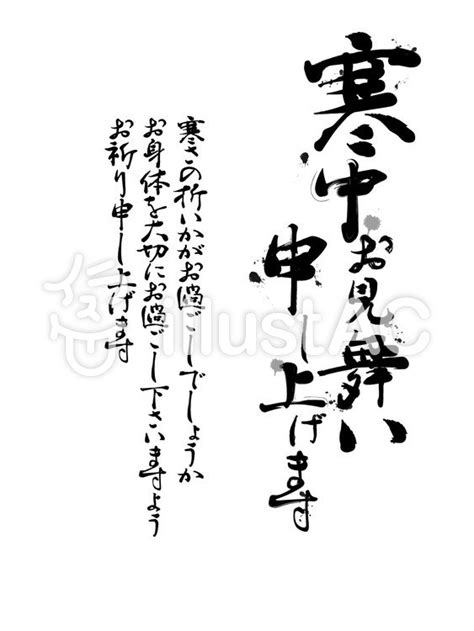 寒中お見舞い
申し上げます
寒さの折いかがお過ごしでしょうか
お身体を大切にお過ごし下さいますよう
お祈り申し上げます
illustAC